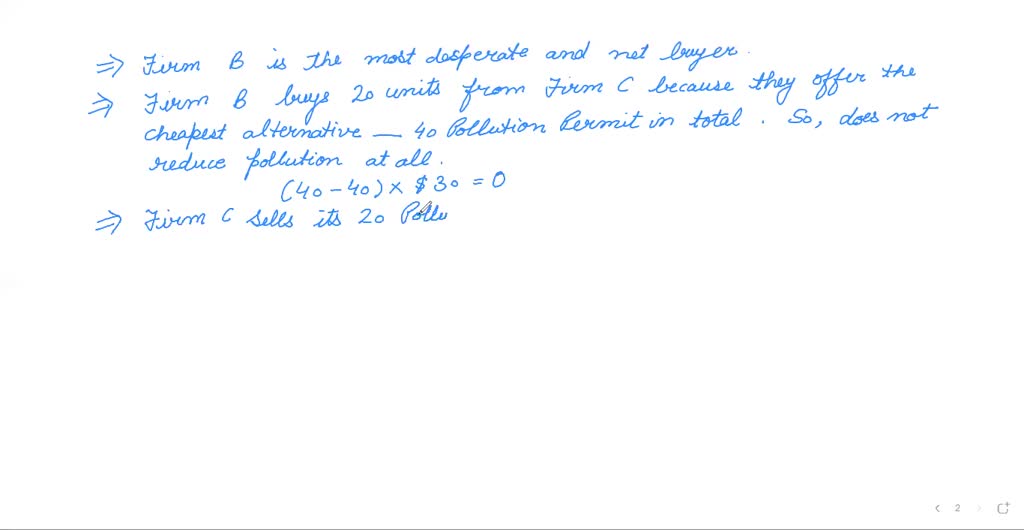 ⇒ Firm B is the most desperate and net buyer.
⇒ Firm B buys 20 units from Firm C because they offer the
cheapest alternative — 40 Pollution Permit in total. So, does not
reduce pollution at all.
(40-40) × $30 = 0
⇒ Firm C sells its 20 Pollu
2